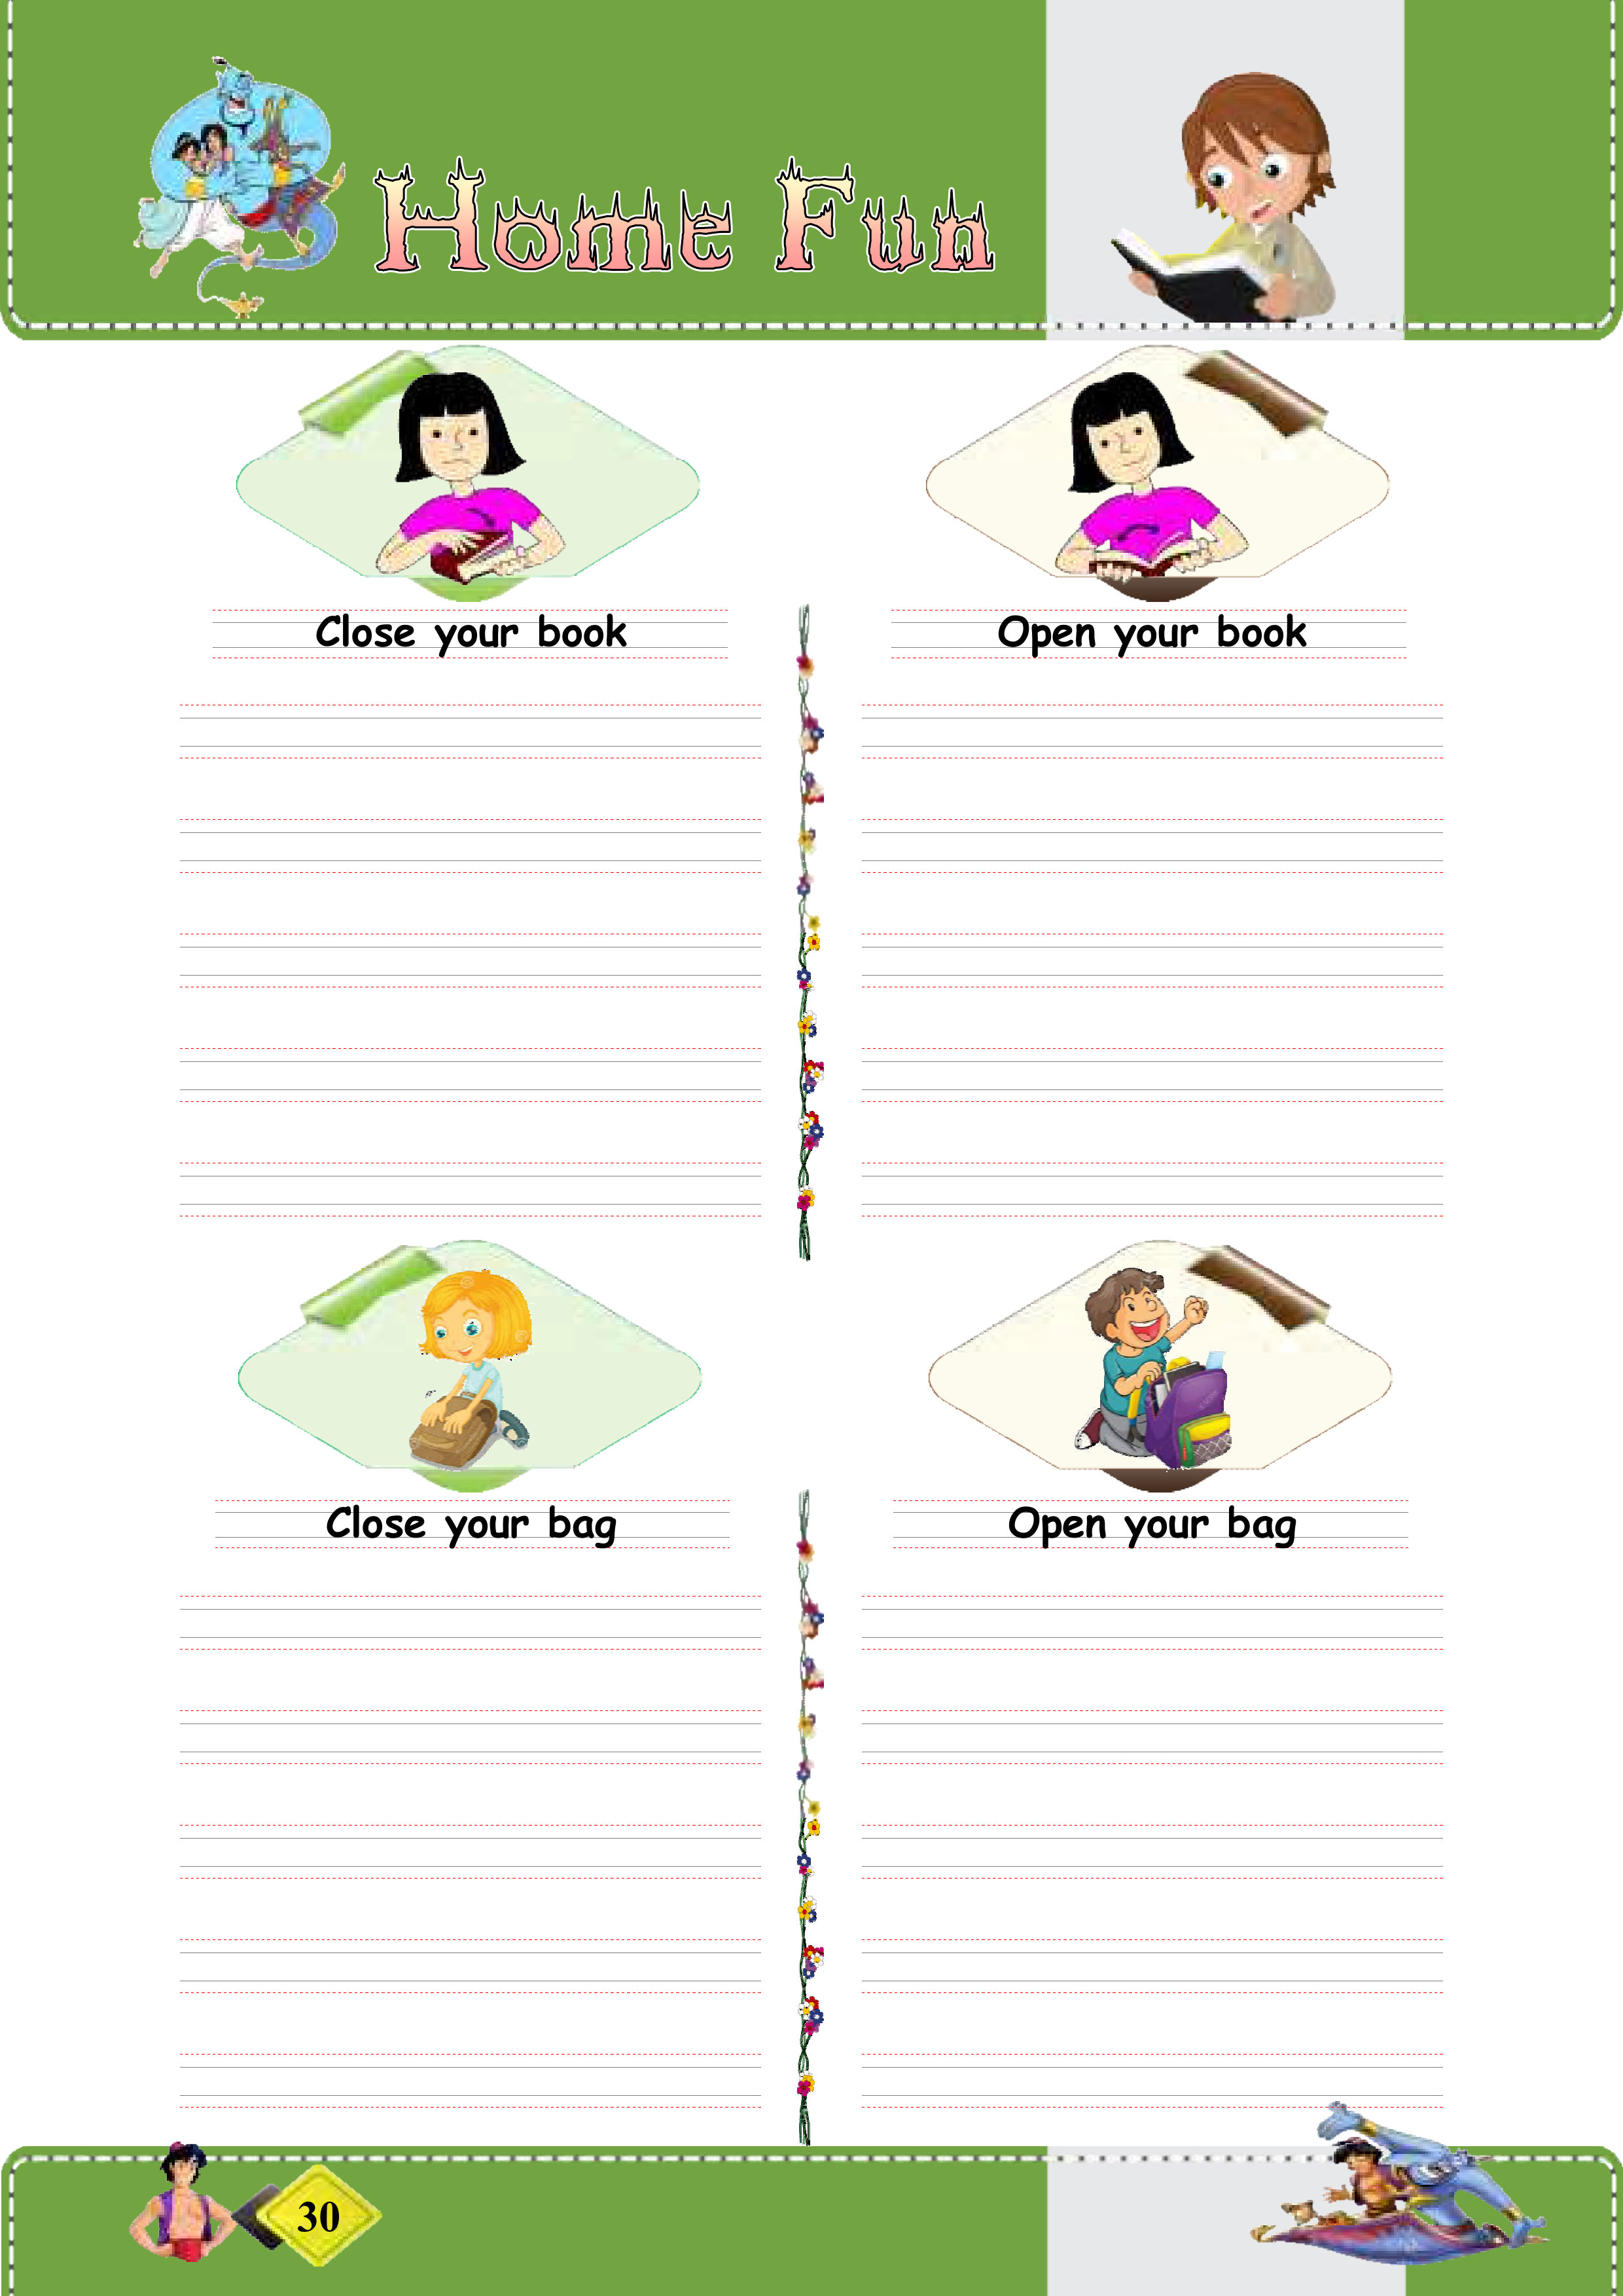 Home Fun
Close your book
Open your book
Close your bag
Open your bag
30